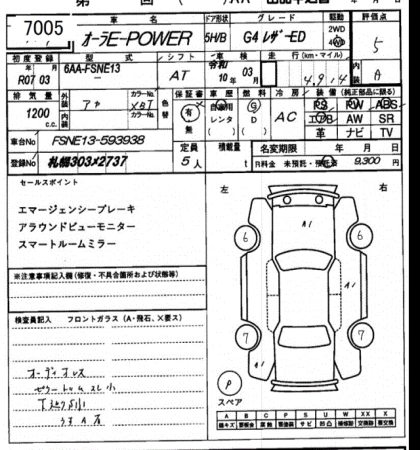 7005
車名 ドア形状 グレード 駆動 評価点
オーラE-POWER 5H/B G4 レザーED 2WD 4WD 5
初度登録 型式 シフト 車検 走行(km・マイル) 内装
R07 03 6AA-FSNE13 AT 令和 10年 03月 4,914 A
排気量 外装 カラーNo. 色替 保証書 車歴 燃料 冷房 装備(純正部品に限る)
1200 c.c. 内装 カラーNo. XBJ 有・無 自家用 レンタ G D AC PS PW ABS
エアB AW SR
革 ナビ TV
車台No FSNE13-593938
登録No 札幌303メ2737
定員 5人 積載量 t 名変期限 年 月 日
R料金 未預託・預託済 9,300 円
セールスポイント
エマージェンシーブレーキ
アラウンドビューモニター
スマートルームミラー
※注意事項記入欄(修復・不具合箇所および状態等)
検査員記入 フロントガラス(A・飛石、X要ス)
オーディオレス
左 右
A1
6 6
A1
7 7
A1
P
スペア
A B C P S U W X XX
線キズ 腐蝕 サビ 凹凸 補修跡 交換跡